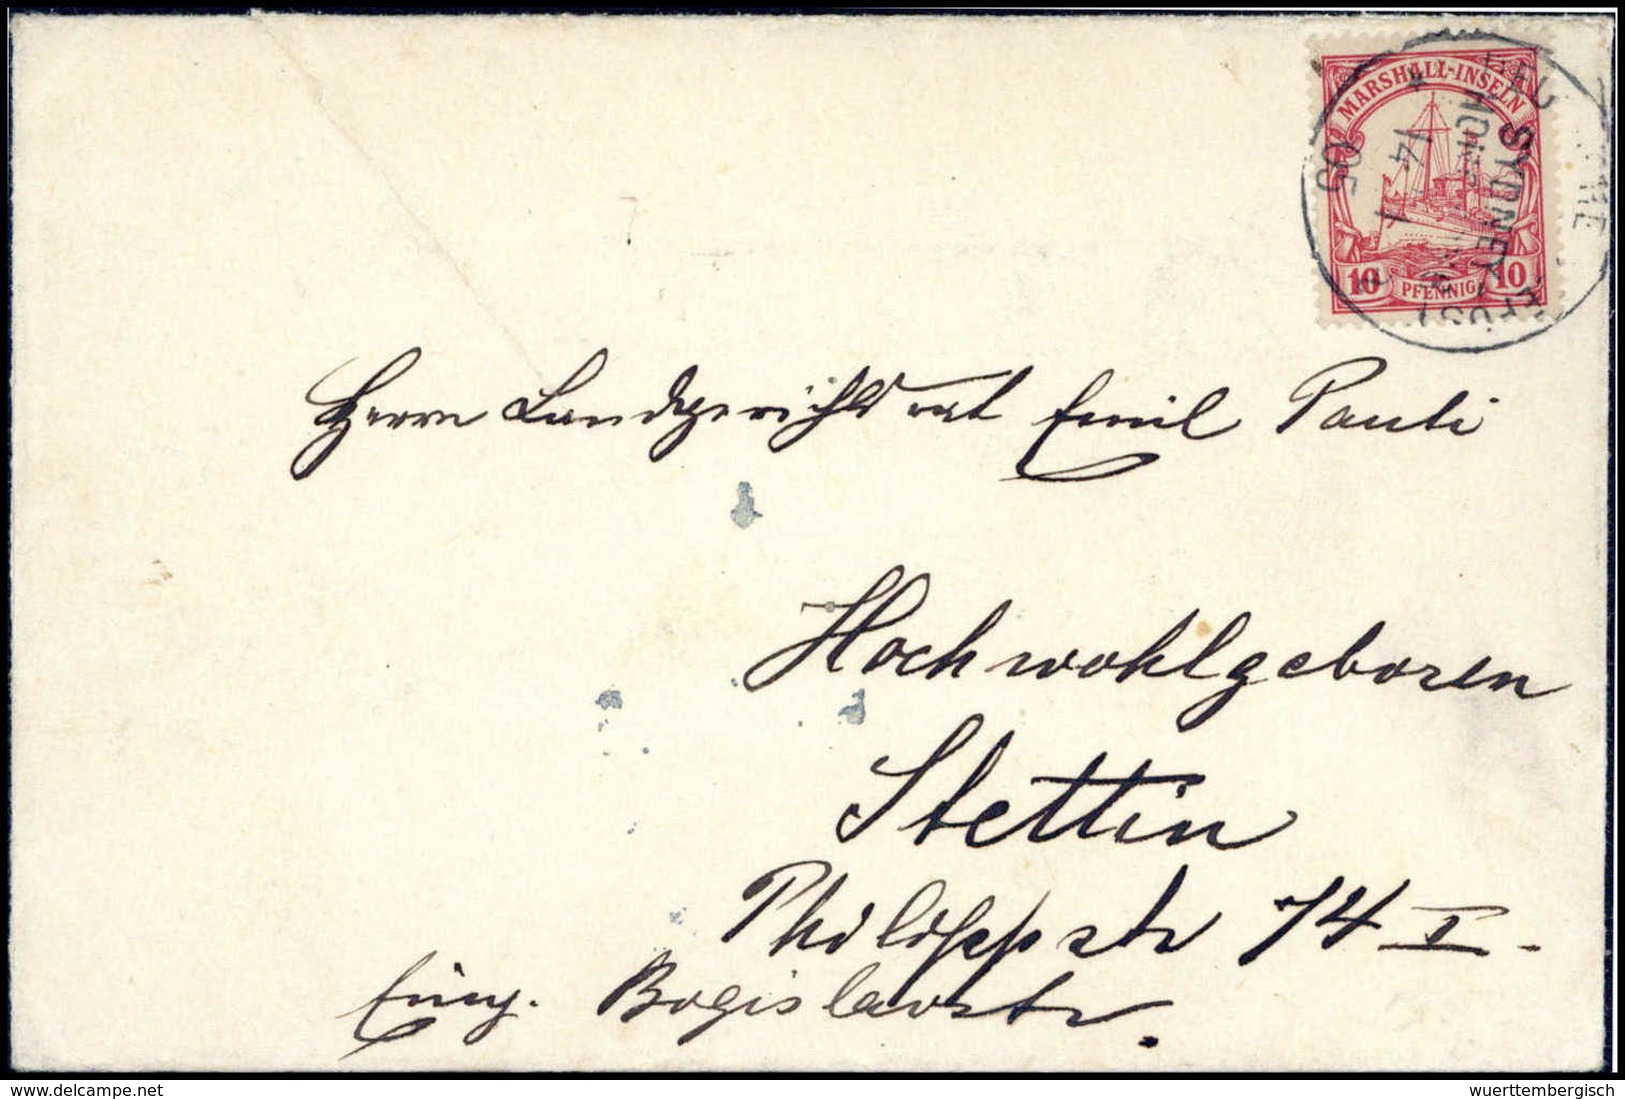 MARSHALL-INSELN
10 PFENNIG 10
SYDNEY
HONGKONG
14
1
05
Herrn Landgerichtsrat Emil Pauli
Hochwohlgeboren
Stettin
Philippstr 74 I.
Eing. Bogislavstr.
www.delcampe.net
wuerttembergisch